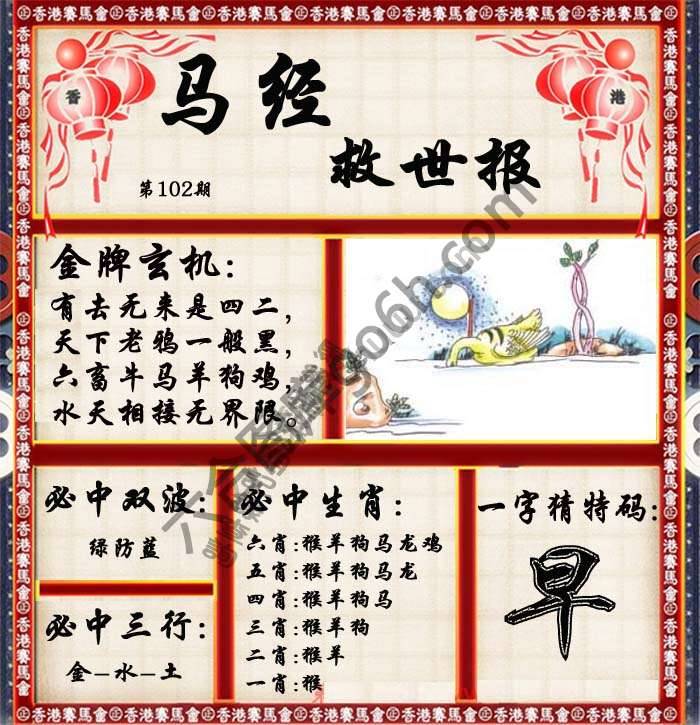 香港賽馬會㊣香港賽馬會㊣香港賽馬會㊣香港賽馬會㊣香港賽馬會
香
港
马经
救世报
第102期
金牌玄机：
有去无来是四二，
天下老鸦一般黑，
六畜牛马羊狗鸡，
水天相接无界限。
必中双波：
绿防蓝
必中三行：
金-水-土
必中生肖：
六肖:猴羊狗马龙鸡
五肖:猴羊狗马龙
四肖:猴羊狗马
三肖:猴羊狗
二肖:猴羊
一肖:猴
一字猜特码：
早